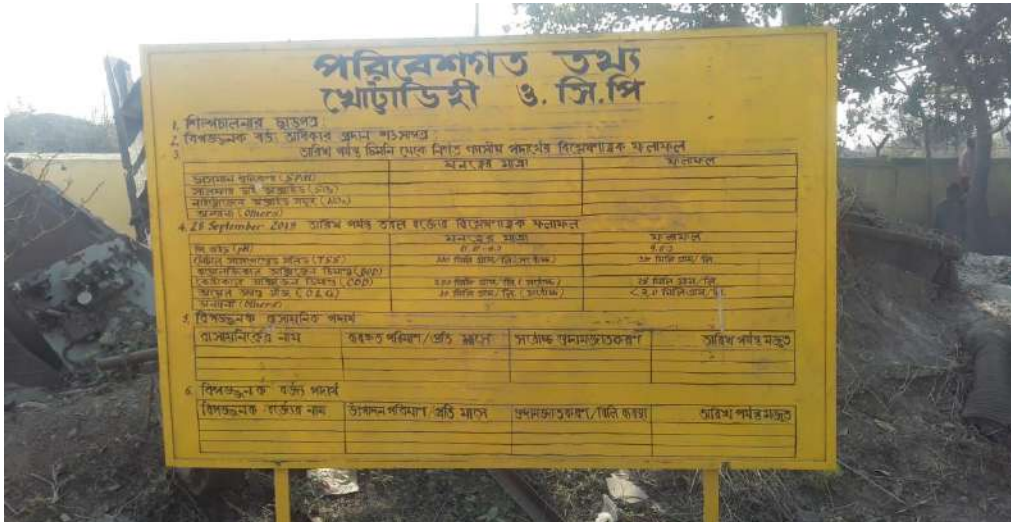 পরিবেশগত তথ্য
খোট্টাডিহী ও. সি.পি
1. শিল্পচালনার ছাড়পত্র :
2. বিপজ্জনক বর্জ্য অধিকার প্রদান শংসাপত্র :
3. তারিখ পর্যন্ত চিমনি থেকে নির্গত গ্যাসীয় পদার্থের বিশ্লেষণাত্মক ফলাফল
মানত্বের মাত্রা ফলাফল
ভাসমান ধূলিকণা (SPM)
সালফার ডাই অক্সাইড (SO₂)
নাইট্রোজেন অক্সাইড সমূহ (NOx)
অন্যান্য (Others)
4. 28 September 2019 তারিখ পর্যন্ত তরল বর্জ্যের বিশ্লেষণাত্মক ফলাফল
মানত্বের মাত্রা ফলাফল
পি এইচ (pH)
(TSS) মিলি গ্রাম/লি মিলি গ্রাম/লি
অক্সিজেন ডিমান্ড (BOD)
অক্সিজেন ডিমান্ড (COD) মিলি গ্রাম/লি মিলি গ্রাম/লি
(O&G) মিলি গ্রাম/লি মিলি গ্রাম/লি
অন্যান্য (Others)
5. বিপজ্জনক রাসায়নিক পদার্থ
রাসায়নিকের নাম পরিমাণ/প্রতি মাসে সর্বোচ্চ গুদামজাতকরণ তারিখ পর্যন্ত মজুত
6. বিপজ্জনক বর্জ্য পদার্থ
বিপজ্জনক বর্জ্যের নাম উৎপাদন পরিমাণ/প্রতি মাসে গুদামজাতকরণ/বিলি ব্যবস্থা তারিখ পর্যন্ত মজুত